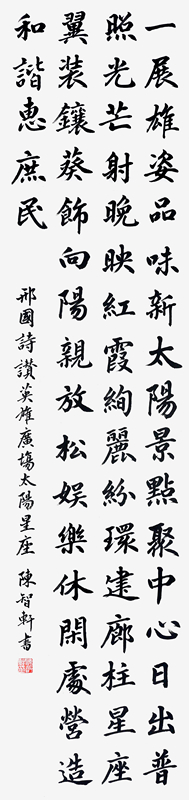 一展雄姿品味新太陽景點聚中心日出普
照光芒射晚映紅霞絢麗紛環建廊柱星座
翼裝鑲葵飾向陽親放松娛樂休閑處營造
和諧惠庶民
邢國詩讚英雄廣場太陽星座 陳智軒書